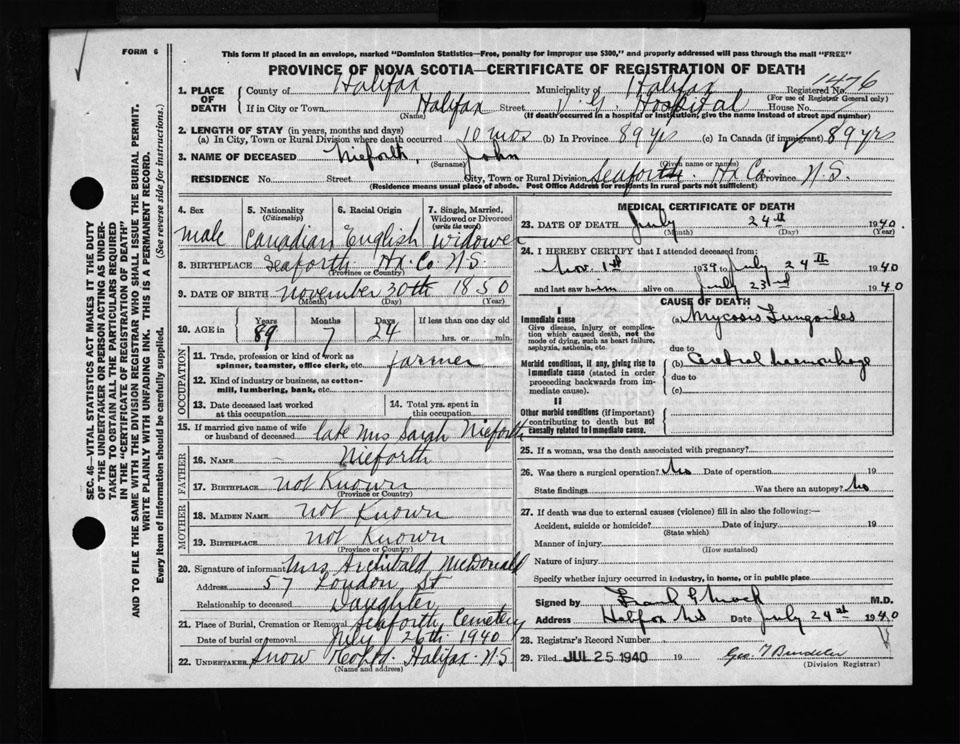 FORM 6
This form if placed in an envelope, marked "Dominion Statistics—Free, penalty for improper use $300," and properly addressed will pass through the mail "FREE"
PROVINCE OF NOVA SCOTIA—CERTIFICATE OF REGISTRATION OF DEATH
1. PLACE OF DEATH County of Halifax Municipality of Halifax Registered No. 1476
(For use of Registrar General only)
If in City or Town Halifax Street V. G. Hospital House No.
(Name) (If death occurred in a hospital or institution, give the name instead of street and number)
2. LENGTH OF STAY (in years, months and days)
(a) In City, Town or Rural Division where death occurred 10 mos (b) In Province 89 yrs (c) In Canada (if immigrant) 89 yrs
3. NAME OF DECEASED Nieforth, John
(Surname) (Given name or names)
RESIDENCE No. Street City, Town or Rural Division Seaforth Hx Co. Province N.S.
(Residence means usual place of abode. Post Office Address for residents in rural parts not sufficient)
4. Sex male
5. Nationality (Citizenship) Canadian
6. Racial Origin English
7. Single, Married, Widowed or Divorced (write the word) widower
8. BIRTHPLACE Seaforth Hx. Co. N.S
(Province or Country)
9. DATE OF BIRTH November 30th 1850
(Month) (Day) (Year)
10. AGE in Years 89 Months 7 Days 24 If less than one day old hrs. or min.
OCCUPATION
11. Trade, profession or kind of work as spinner, teamster, office clerk, etc. farmer
12. Kind of industry or business, as cotton-mill, lumbering, bank, etc.
13. Date deceased last worked at this occupation
14. Total yrs. spent in this occupation
15. If married give name of wife or husband of deceased late Mrs Sarah Nieforth
FATHER
16. NAME Nieforth
17. BIRTHPLACE not Known
(Province or Country)
MOTHER
18. MAIDEN NAME not Known
19. BIRTHPLACE not Known
(Province or Country)
20. Signature of informant Mrs Archibald McDonald
Address 57 London St
Relationship to deceased Daughter
21. Place of Burial, Cremation or Removal Seaforth Cemetery
Date of burial or removal July 26th 1940
22. UNDERTAKER Snow & Co Ltd. Halifax N.S
(Name and address)
MEDICAL CERTIFICATE OF DEATH
23. DATE OF DEATH July 24th 1940
(Month) (Day) (Year)
24. I HEREBY CERTIFY that I attended deceased from:
Nov. 1st 1939 to July 24th 1940
and last saw him alive on July 23rd 1940
CAUSE OF DEATH
I
Immediate cause
Give disease, injury or complication which caused death, not the mode of dying, such as heart failure, asphyxia, asthenia, etc.
(a) Mycosis Fungoides
due to
Morbid conditions, if any, giving rise to immediate cause (stated in order proceeding backwards from immediate cause).
(b) Cerebral haemorrhage
due to
(c)
II
Other morbid conditions (if important) contributing to death but not causally related to immediate cause.
25. If a woman, was the death associated with pregnancy?
26. Was there a surgical operation? No Date of operation 19
State findings Was there an autopsy? No
27. If death was due to external causes (violence) fill in also the following:—
Accident, suicide or homicide? Date of injury 19
(State which)
Manner of injury
(How sustained)
Nature of injury
Specify whether injury occurred in industry, in home, or in public place
Signed by Frank G Mack M.D.
Address Halifax NS Date July 24th 1940
28. Registrar's Record Number
29. Filed JUL 25 1940 19
(Division Registrar)
SEC. 46—VITAL STATISTICS ACT MAKES IT THE DUTY
OF THE UNDERTAKER OR PERSON ACTING AS UNDER-
TAKER TO OBTAIN ALL THE PARTICULARS REQUIRED
IN THE "CERTIFICATE OF REGISTRATION OF DEATH"
AND TO FILE THE SAME WITH THE DIVISION REGISTRAR WHO SHALL ISSUE THE BURIAL PERMIT.
WRITE PLAINLY WITH UNFADING INK. THIS IS A PERMANENT RECORD.
Every item of information should be carefully supplied. (See reverse side for instructions.)